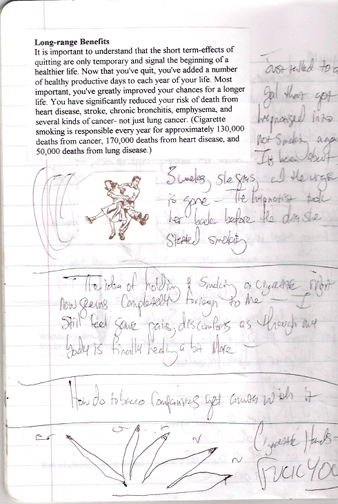 Long-range Benefits
It is important to understand that the short term-effects of
quitting are only temporary and signal the beginning of a
healthier life. Now that you've quit, you've added a number
of healthy productive days to each year of your life. Most
important, you've greatly improved your chances for a longer
life. You have significantly reduced your risk of death from
heart disease, stroke, chronic bronchitis, emphysema, and
several kinds of cancer- not just lung cancer. (Cigarette
smoking is responsible every year for approximately 130,000
deaths from cancer, 170,000 deaths from heart disease, and
50,000 deaths from lung disease.)
Just talked to a
gal that got
hypnotized into
not smoking again
It's been about
3 weeks, she says, all the urge
is gone - The hypnotist took
her back before the desire
started smoking
The idea of holding & smoking a cigarette right
now seems completely foreign to me - I
still feel some pains, discomforts as though my
body is finally healing a bit more -
How do tobacco companies get away with it
Cigarette Heads -
FUCK YOU